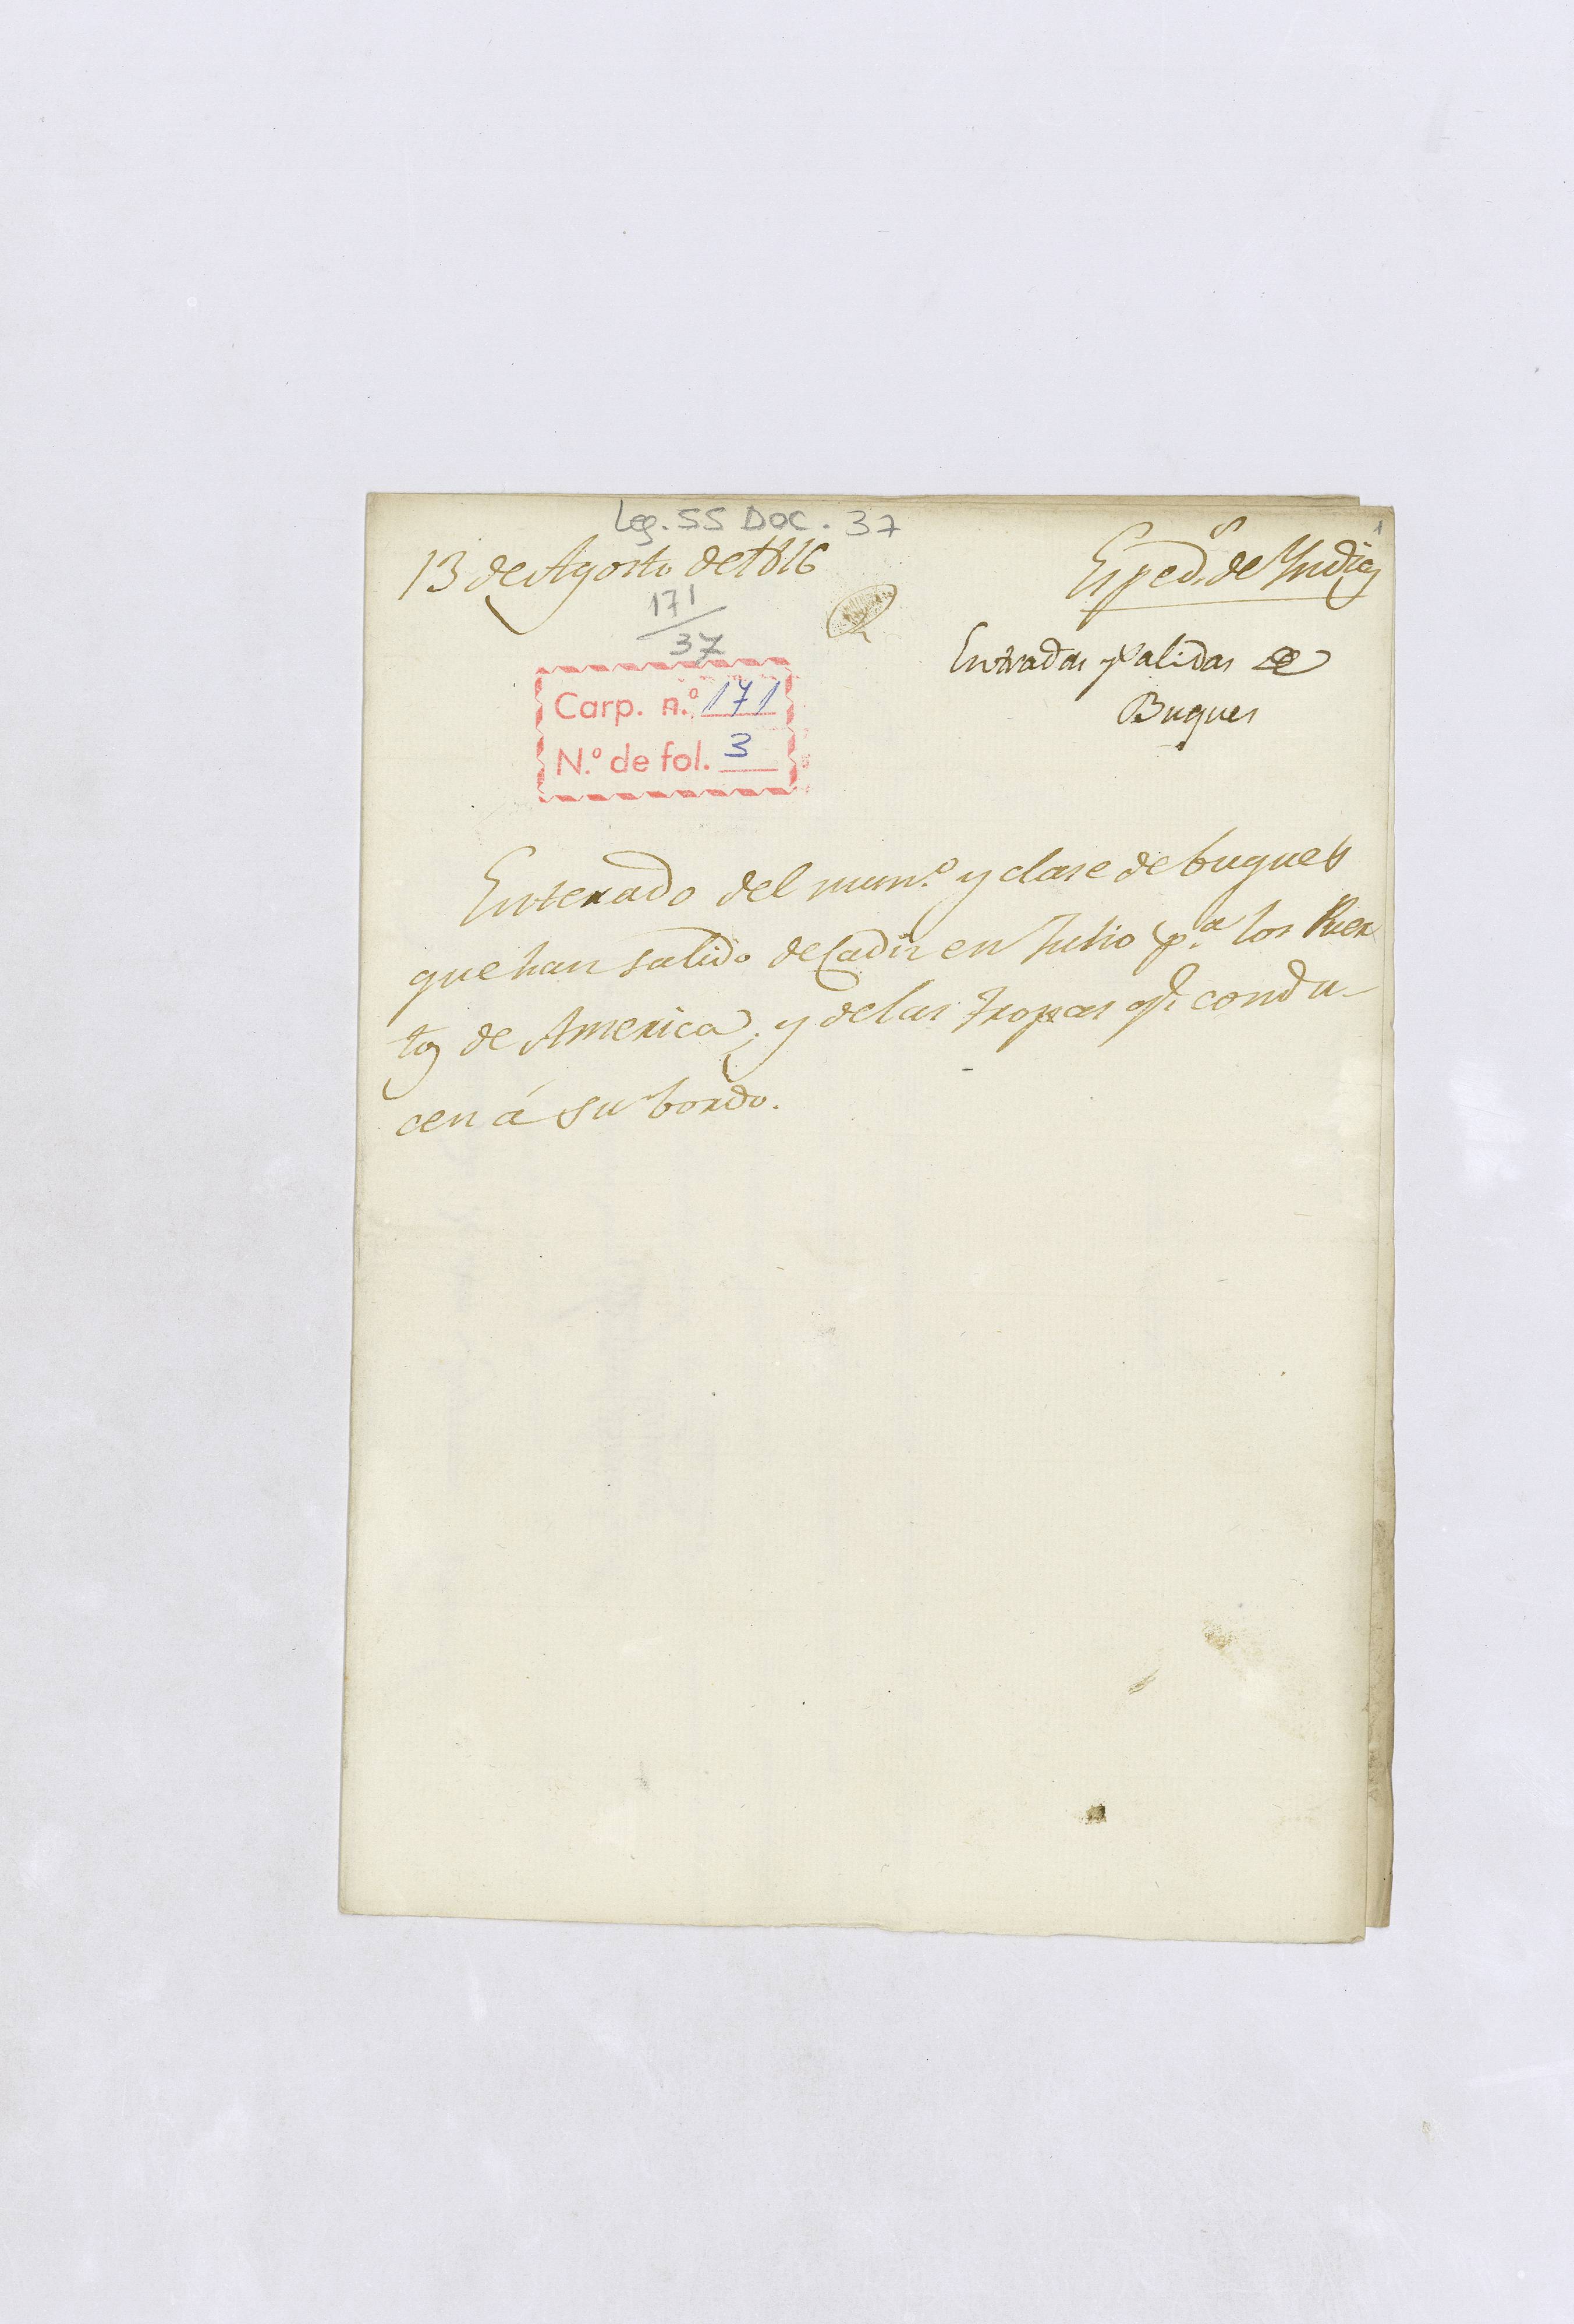 Leg. 55 Doc. 37
13 de Agosto de 1816
Esped.s de Yndias
1
171
37
Entradas y Salidas de
Buques
Carp. n.º 171
N.º de fol. 3
Enterado del num.º y clase de buques
que han salido de Cadiz en Julio p.ª los Puer
tos de America, y de las Tropas q.e condu-
cen á su bordo.